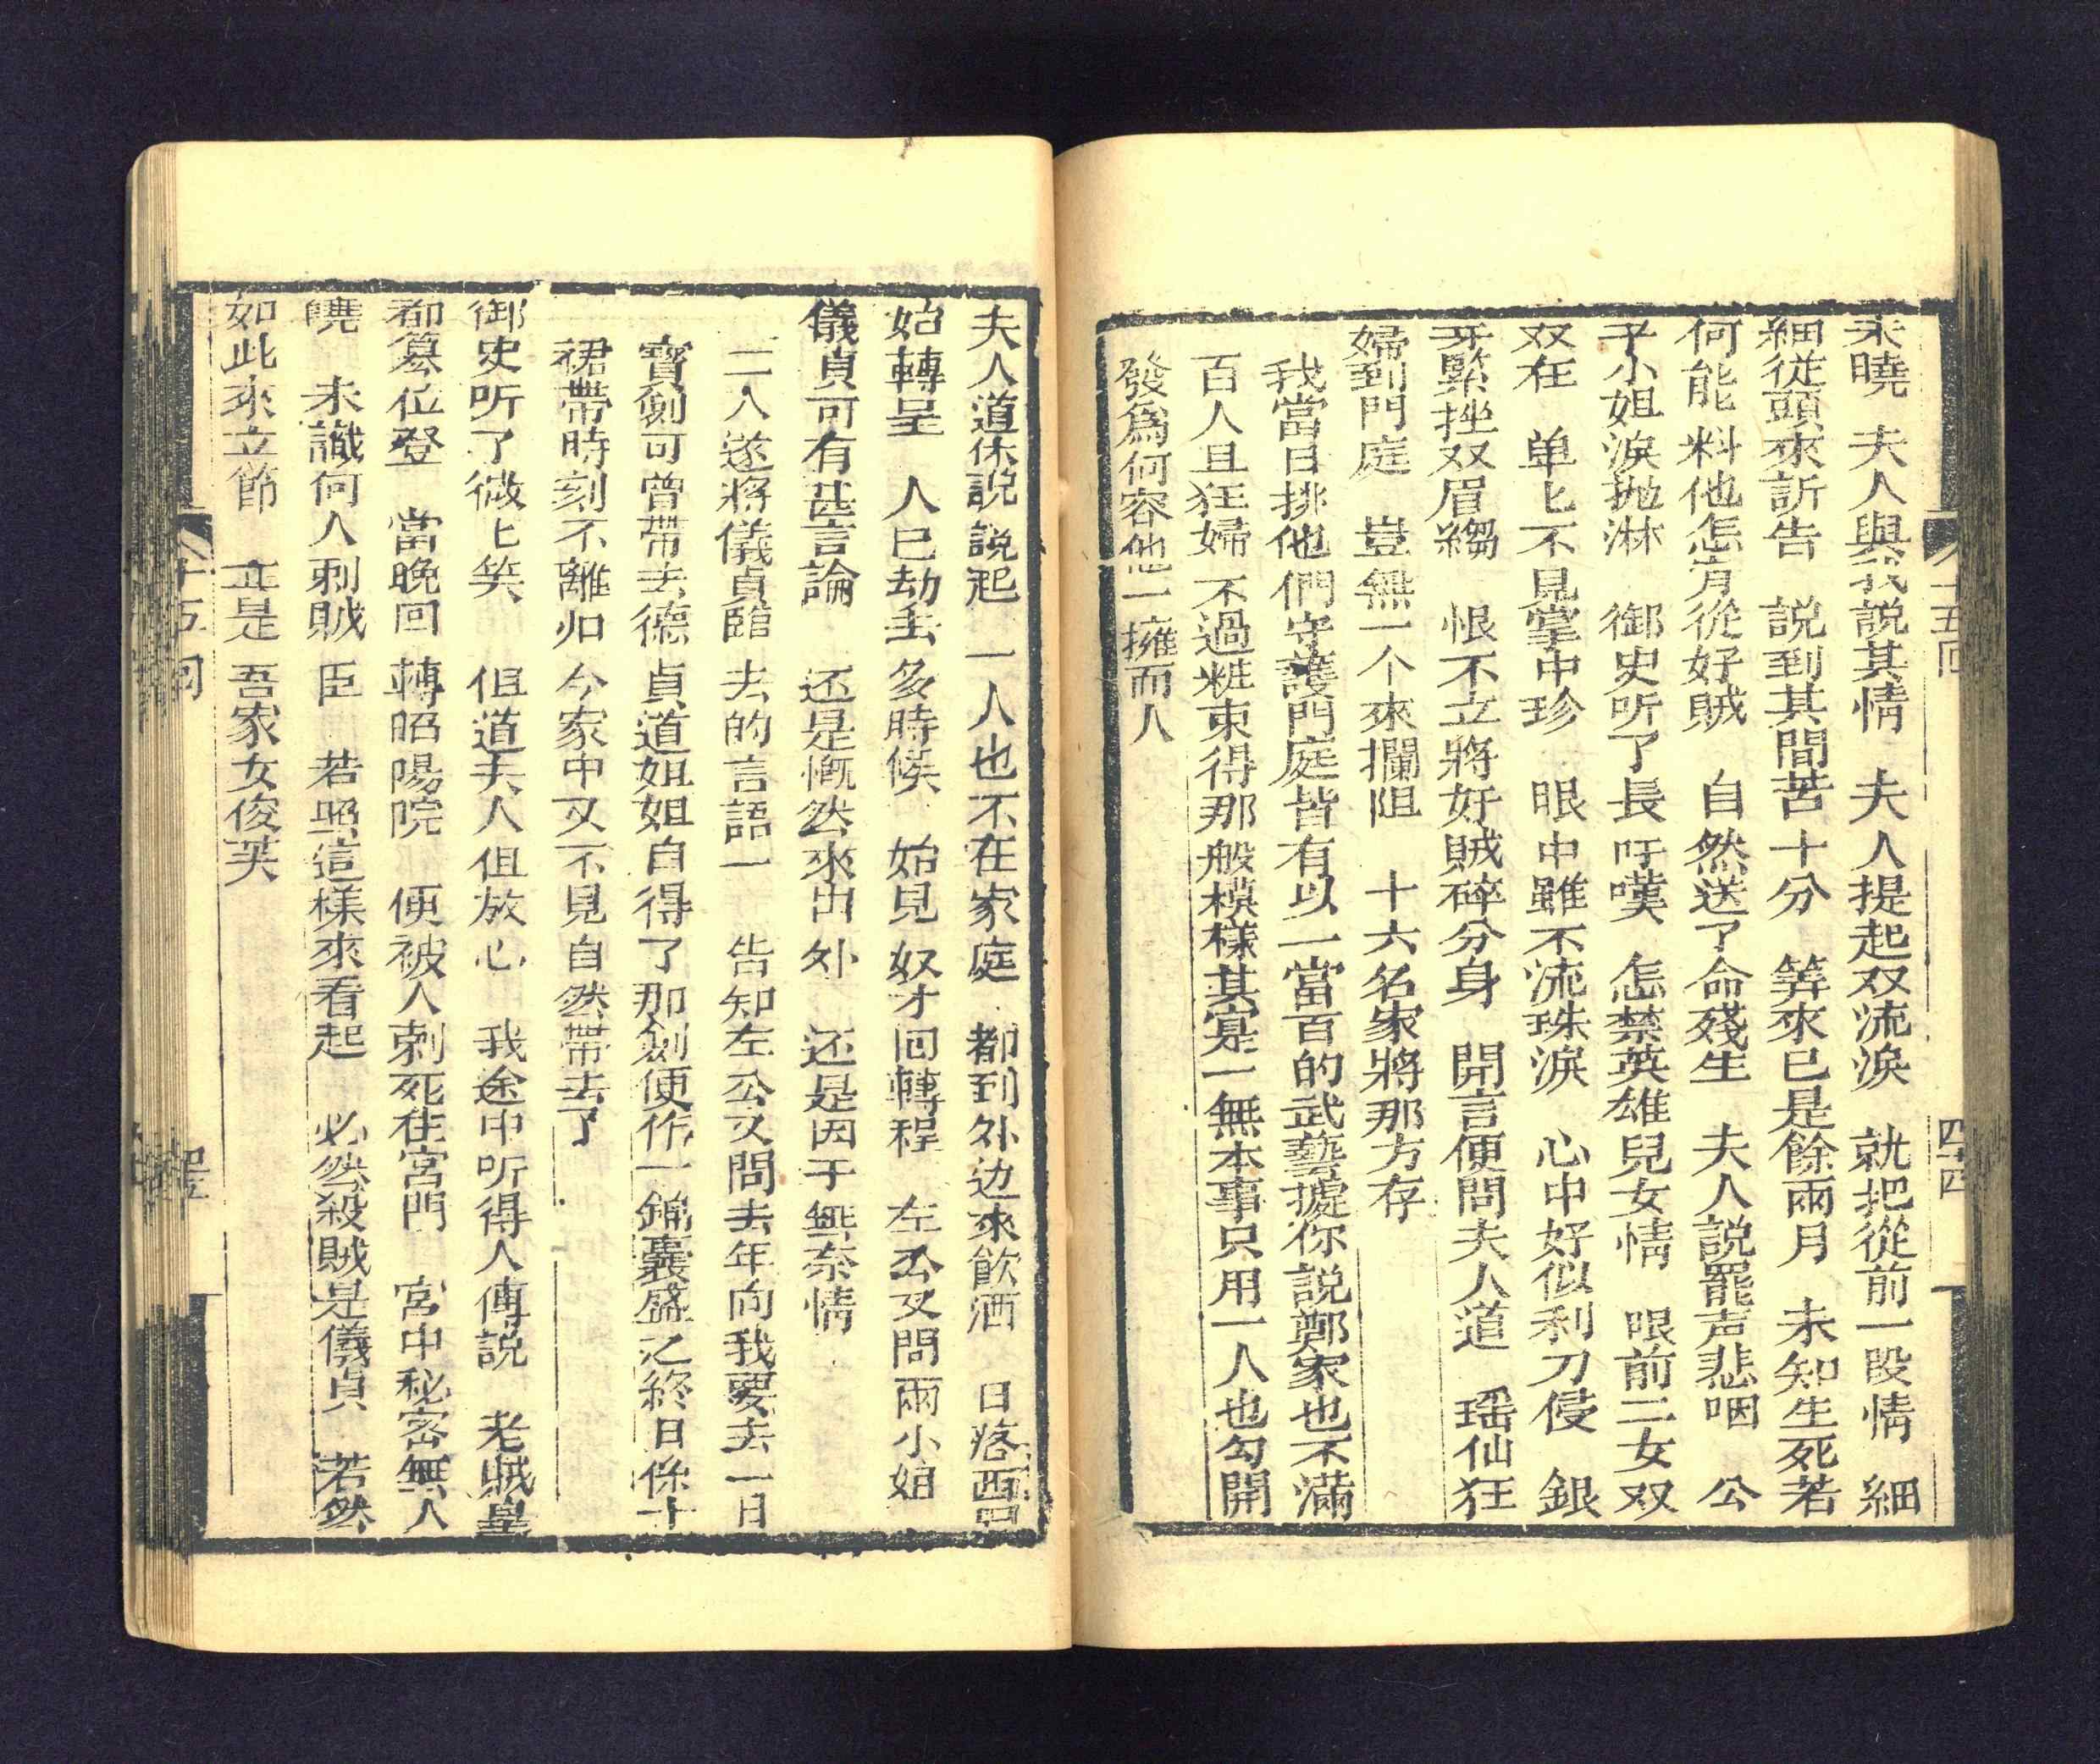 十五回 四十四
未曉 夫人與我說其情 夫人提起双流淚 就把從前一段情 細
細從頭來訴告 說到其間苦十分 筭來已是餘兩月 未知生死若
何能料他怎肯從奸賊 自然送了命殘生 夫人說罷声悲咽 公
子小姐淚抛淋 御史听了長吁嘆 怎禁英雄兒女情 眼前二女双
双在 单匕不見掌中珍 眼中雖不流珠淚 心中好似利刀侵 銀
牙緊挫双眉縐 恨不立將奸賊碎分身 開言便問夫人道 瑶仙狂
婦到門庭 豈無一个來攔阻 十六名家將那方存
我當日排他們守護門庭皆有以一當百的武藝據你說鄭家也不滿
百人且狂婦不過粧束得那般模樣其寔一無本事只用一人也勾開
發爲何容他一擁而人
夫人道休說說起 一人也不在家庭 都到外边來飲酒 日落西
始轉呈 人已劫去多時候 始見奴才回轉程 左公又問兩小姐
儀貞可有甚言論 还是慨然來出外 还是因于無奈情
二人遂將儀貞臨去的言語一告知左公又問去年向我要去一日
寳劍可曾帶去德貞道姐姐自得了那劍便作一錦囊盛之終日係于
裙帶時刻不離如今家中又不見自然帶去了
御史听了微匕笑 但道夫人但放心 我途中听得人傳說 老賊皇
都篡位登 當晚回轉昭陽院 便被人刺死在宮門 宮中秘密無人
曉 未識何人剌賊臣 若照這樣來看起 必然殺賊是儀貞 若然
如此來立節 正是吾家女俊英
十五回